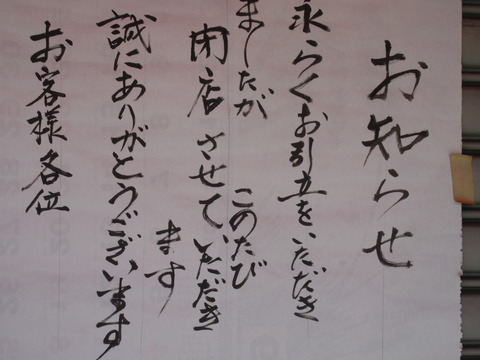 お知らせ
永らくお引立をいただき
ましたが このたび
閉店させていただき
ます
誠にありがとうございます
お客様各位